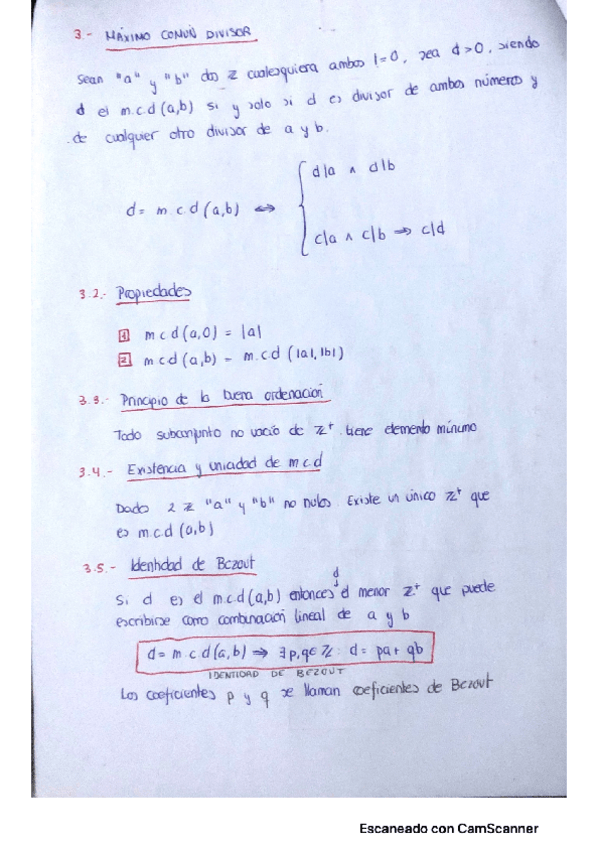 3.- MÁXIMO COMÚN DIVISOR
Sean "a" y "b" dos Z cualesquiera ambos != 0, sea d>0, siendo
d el m.c.d (a,b) si y solo si d es divisor de ambos números y
de cualquier otro divisor de a y b.
d|a ∧ d|b
d = m.c.d (a,b) ⟺
c|a ∧ c|b ⇒ c|d
3.2.- Propiedades
1 m.c.d (a,0) = |a|
2 m.c.d (a,b) = m.c.d (|a|,|b|)
3.3.- Principio de la buena ordenación
Todo subconjunto no vacío de Z+ tiene elemento mínimo
3.4.- Existencia y unicidad de m.c.d
Dados 2 Z "a" y "b" no nulos. Existe un único Z+ que
es m.c.d (a,b)
3.5.- Identidad de Bezout
d
Si d es el m.c.d (a,b) entonces el menor Z+ que puede
escribirse como combinación lineal de a y b
d = m.c.d (a,b) ⇒ ∃ p,q ∈ Z : d = pa + qb
IDENTIDAD DE BEZOUT
Los coeficientes p y q se llaman coeficientes de Bezout
Escaneado con CamScanner